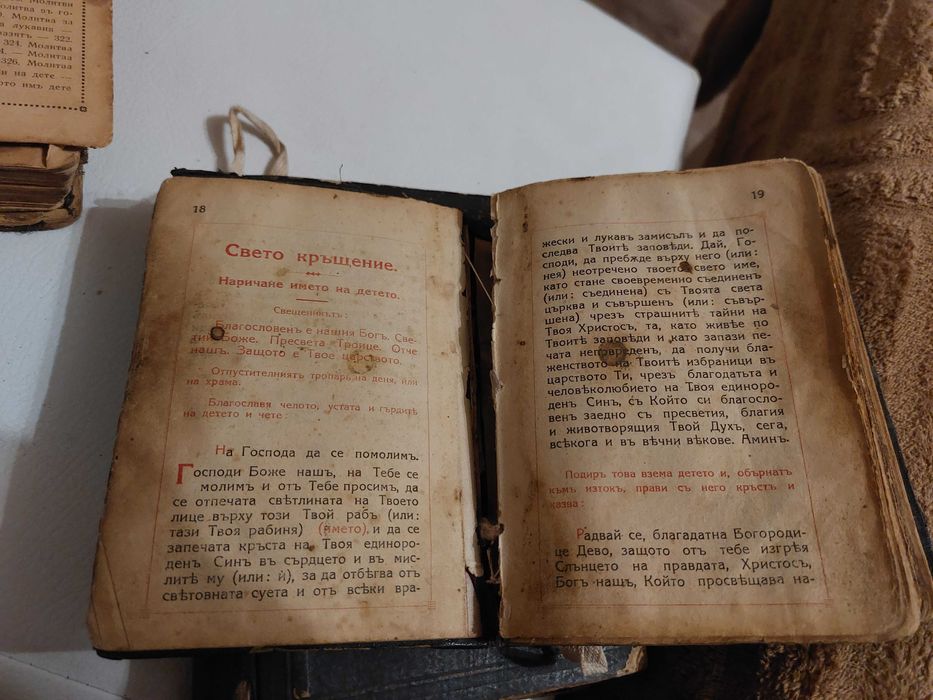 Молитви
литва въ го-
Молитва за
лукавия —
— 322.
324. Молитва
— Молитва
326. Молитва
ни на дете —
ото имъ дете
18
Свето кръщение.
Наричане името на детето.
Свещеникътъ:
Благословенъ е нашия Богъ. Све-
тий Боже. Пресвета Троице. Отче
нашъ. Защото е Твое царството.
Отпустителниятъ тропаръ на деня, или
на храма.
Благославя челото, устата и гърдитѣ
на детето и чете:
На Господа да се помолимъ.
Господи Боже нашъ, на Тебе се
молимъ и отъ Тебе просимъ, да
се отпечата свѣтлината на Твоето
лице върху този Твой рабъ (или:
тази Твоя рабиня) (името), и да се
запечата кръста на Твоя единоро-
денъ Синъ въ сърдцето и въ мис-
литѣ му (или: ѝ), за да отбѣгва отъ
свѣтовната суета и отъ всѣки вра-
19
жески и лукавъ замисълъ и да по-
следва Твоитѣ заповѣди. Дай, Го-
споди, да пребѫде върху него (или:
нея) неотречено твоето свето име,
като стане своевременно съединенъ
(или: съединена) съ Твоята света
църква и съвършенъ (или: съвър-
шена) чрезъ страшнитѣ тайни на
Твоя Христосъ, та, като живѣе по
Твоитѣ заповѣди и като запази пе-
чата неповреденъ, да получи бла-
женството на Твоитѣ избраници въ
царството Ти, чрезъ благодатьта и
человѣколюбието на Твоя единоро-
денъ Синъ, съ Който си благосло-
венъ заедно съ пресветия, благия
и животворящия Твой Духъ, сега,
всѣкога и въ вѣчни вѣкове. Аминъ.
Подиръ това взема детето и, обърнатъ
къмъ изтокъ, прави съ него кръстъ и
казва:
Радвай се, благадатна Богороди-
це Дево, защото отъ тебе изгрѣя
Слънцето на правдата, Христосъ,
Богъ нашъ, Който просвѣщава на-